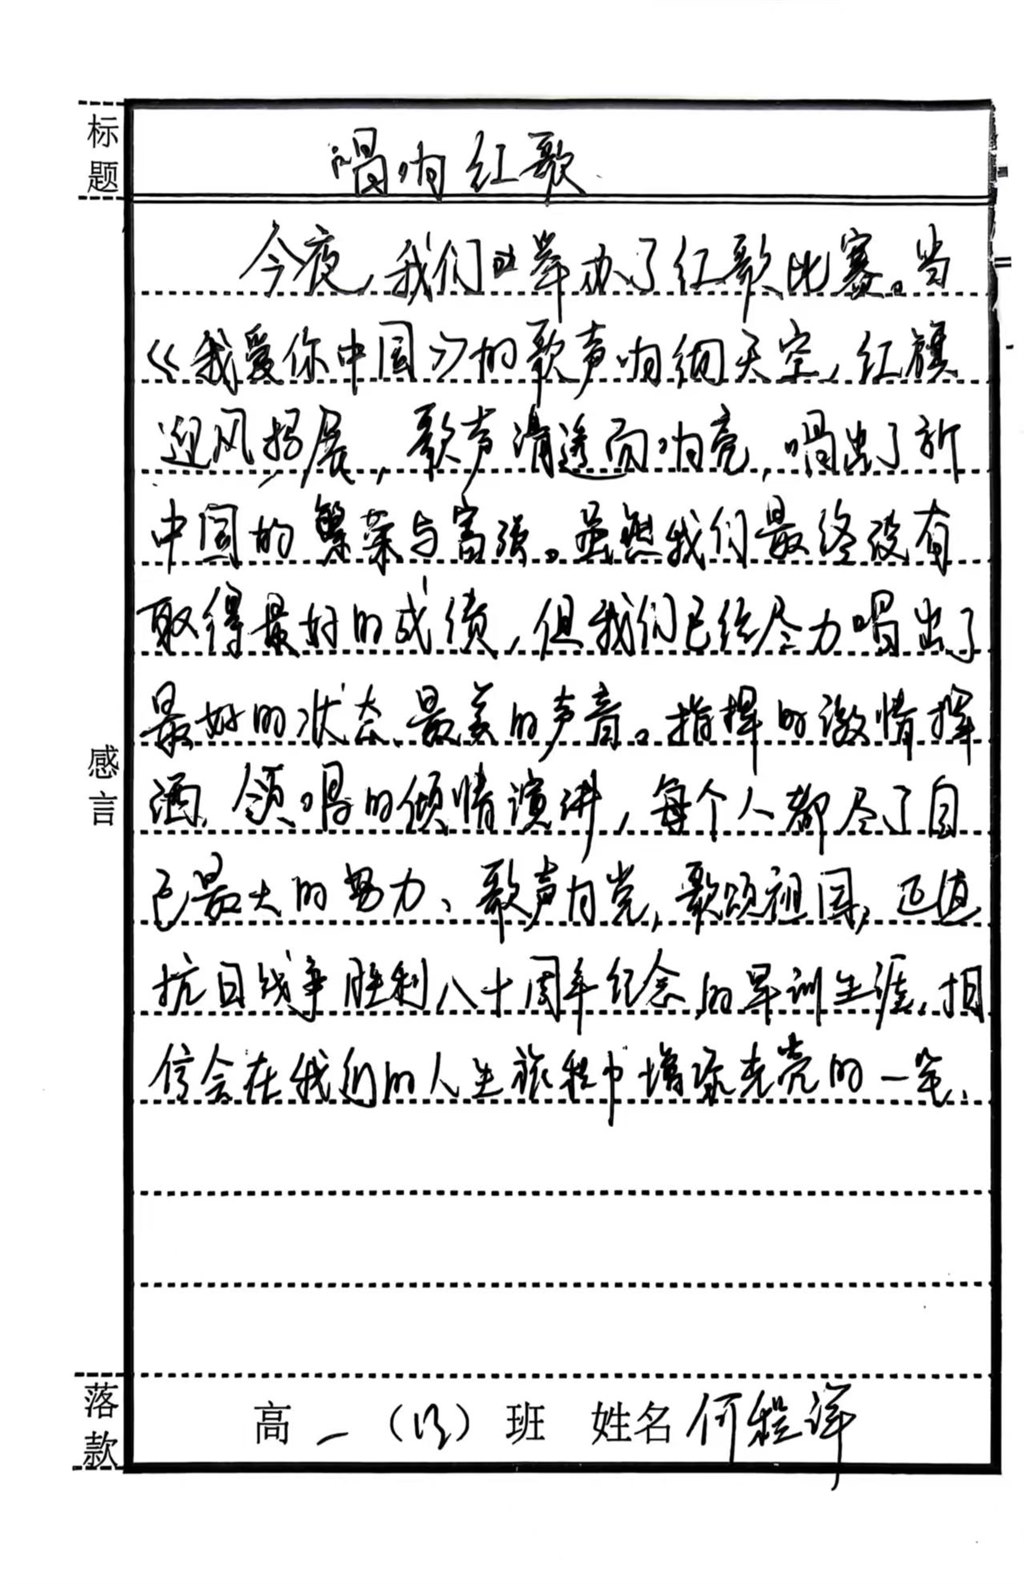 标题
唱响红歌
今夜,我们举办了红歌比赛。当
《我爱你中国》的歌声响彻天空,红旗
迎风招展,歌声清透而响亮,唱出了新
中国的繁荣与富强。虽然我们最终没有
取得最好的成绩,但我们已经尽力唱出了
最好的状态、最美的声音。指挥的激情挥
洒、领唱的倾情演讲,每个人都尽了自
己最大的努力、歌声向党,歌颂祖国,正值
抗日战争胜利八十周年纪念的军训生涯,相
信会在我们的人生旅程中增添光亮的一笔、
感言
落款
高一()班 姓名 何程洋